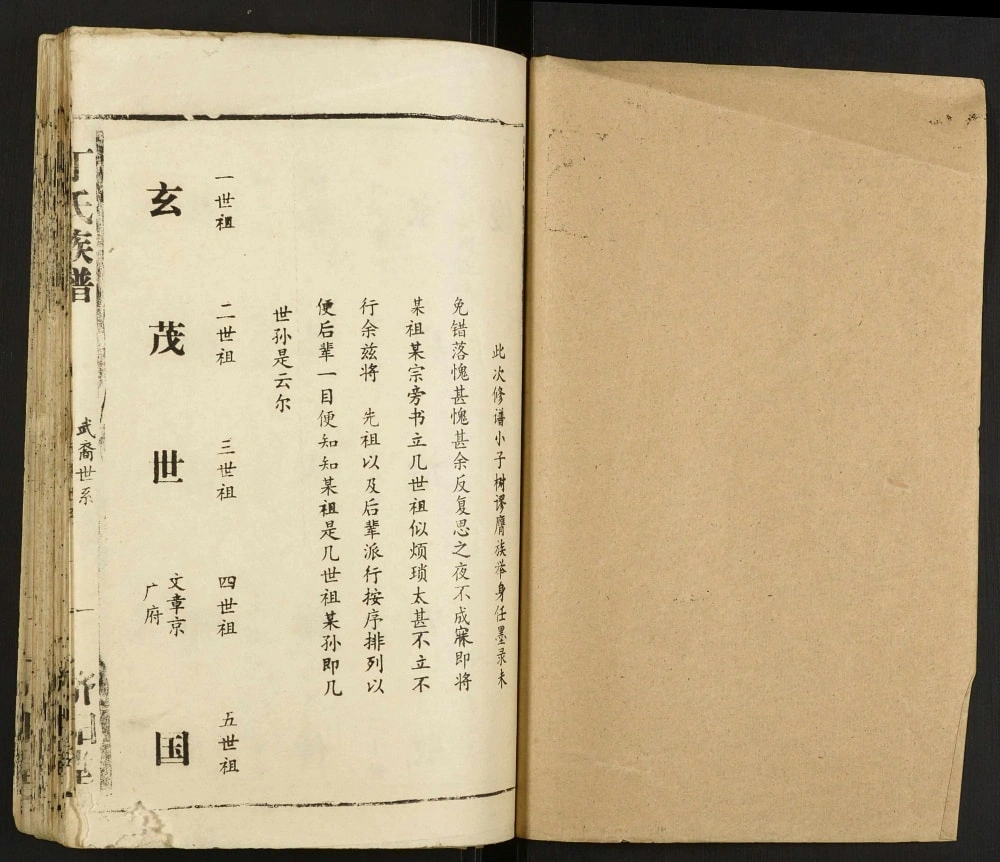 此次修谱小子树谬膺族举身任墨录未
免错落愧甚愧甚余反复思之夜不成寐即将
某祖某宗旁书立几世祖似烦琐太甚不立不
行余兹将　先祖以及后辈派行按序排列以
便后辈一目便知知某祖是几世祖某孙即几
世孙是云尔
一世祖　二世祖　三世祖　四世祖　五世祖
玄　茂　世　文章京广府　国
丁氏族谱　武裔世系　一